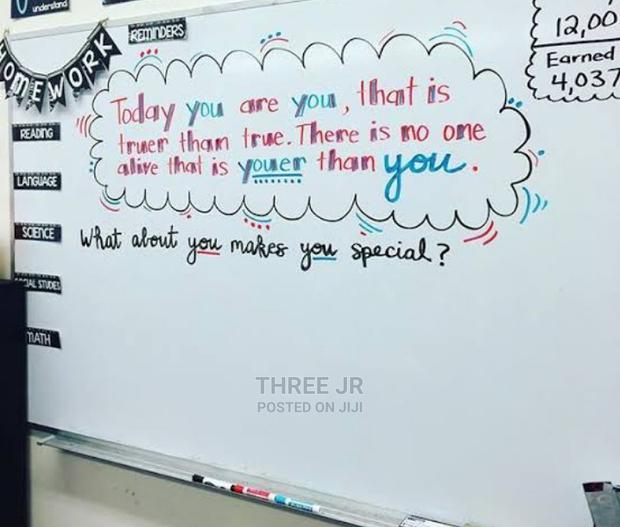 understand
HOMEWORK
REMINDERS
12,00
Earned
4,037
Today you are you, that is
truer than true. There is no one
alive that is youer than you.
What about you makes you special?
READING
LANGUAGE
SCIENCE
IAL STUDIES
MATH
THREE JR
POSTED ON JIJI